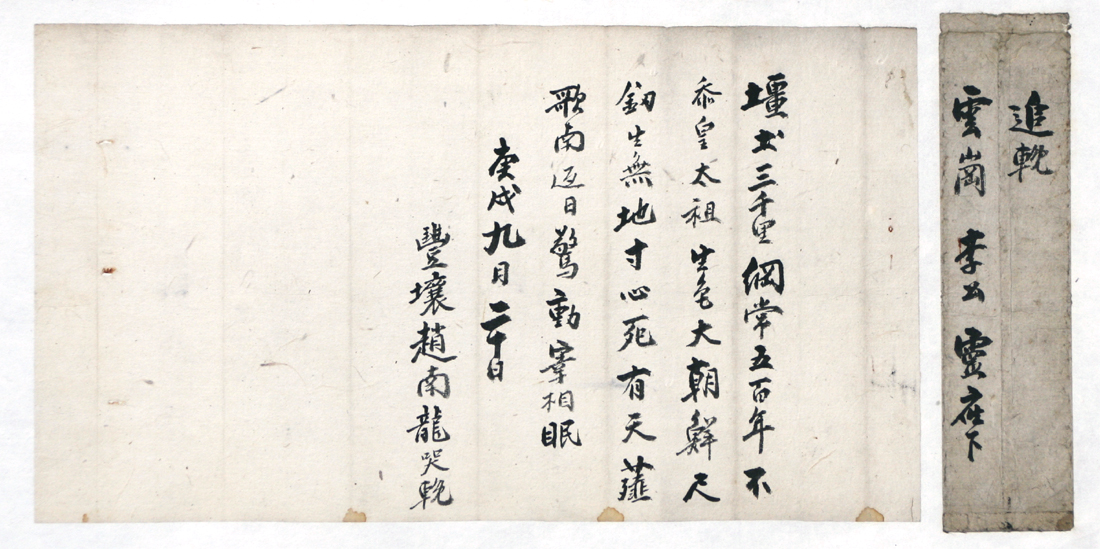 追輓
雲崗 李公 靈座下
壃土三千里綱常五百年不
忝皇太祖生色大朝鮮尺
釰生無地寸心死有天薤
歌南返日驚動宰相眠
庚戌九月二十日
豐壤趙南龍哭輓